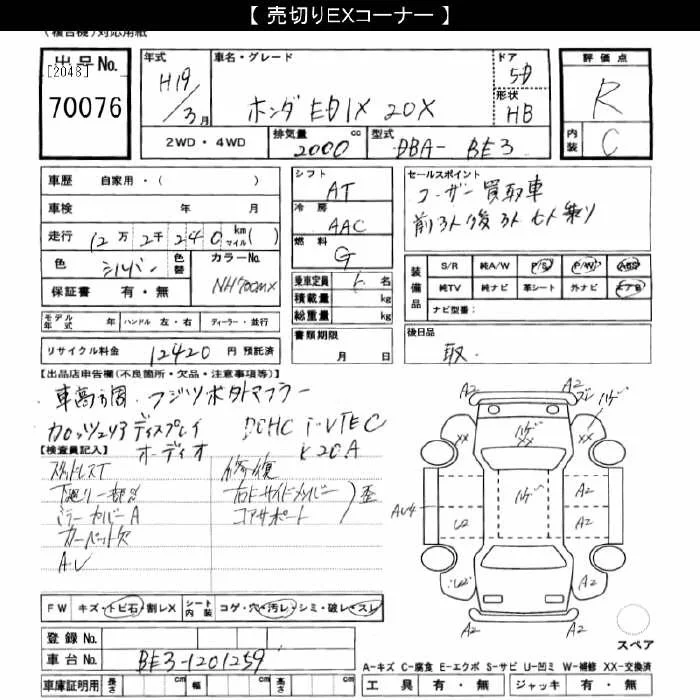 【 売切りEXコーナー 】
(複合機)対応用紙
出品No.
[2048]
70076
年式
H19/3月
車名・グレード
ホンダ EDIX 20X
ドア
5D
形状
HB
評価点
R
内装
C
2WD・4WD
排気量 2000 cc
型式 DBA- BE3
車歴 自家用・( )
車検 年 月
走行 12万2千240 km マイル( )
色 シルバー 色替
カラーNo. NH700MX
保証書 有・無
シフト AT
冷房 AAC
燃料 G
乗車定員 6 名
積載量 kg
総重量 kg
セールスポイント
ユーザー買取車
前3人後3人 6人乗り
装備品
S/R 純A/W P/S P/W ABS
純TV 純ナビ 革シート 外ナビ エアB
ナビ型番:
モデル年式 年 ハンドル 左・右 ディーラー・並行
リサイクル料金 12420 円 預託済
書類期限
月 日
後日品
取
【出品店申告欄(不良箇所・欠品・注意事項等)】
車高調 フジツボタイコマフラー
カロッツェリアディスプレイ DOHC i-VTEC
オーディオ K20A
【検査員記入】
スタッドレスT 修復
下廻り一部 右Fサイドメンバー 歪
ミラーカバーA コアサポート
カーペット欠
AU
FW キズ・トビ石・割レX
シート内装 コゲ・穴・汚レ・シミ・破レ・スレ
登録No.
車台No. BE3-1201259
車庫証明用 長さ cm 幅 cm 高さ cm
A2 A2
A2 XX ハゲ XX ズレ ハゲ
AU4 U2 ハゲ A2 A2 A2
A2 A2
スペア
A-キズ C-腐食 E-エクボ S-サビ U-凹ミ W-補修 XX-交換済
工具 有・無 ジャッキ 有・無